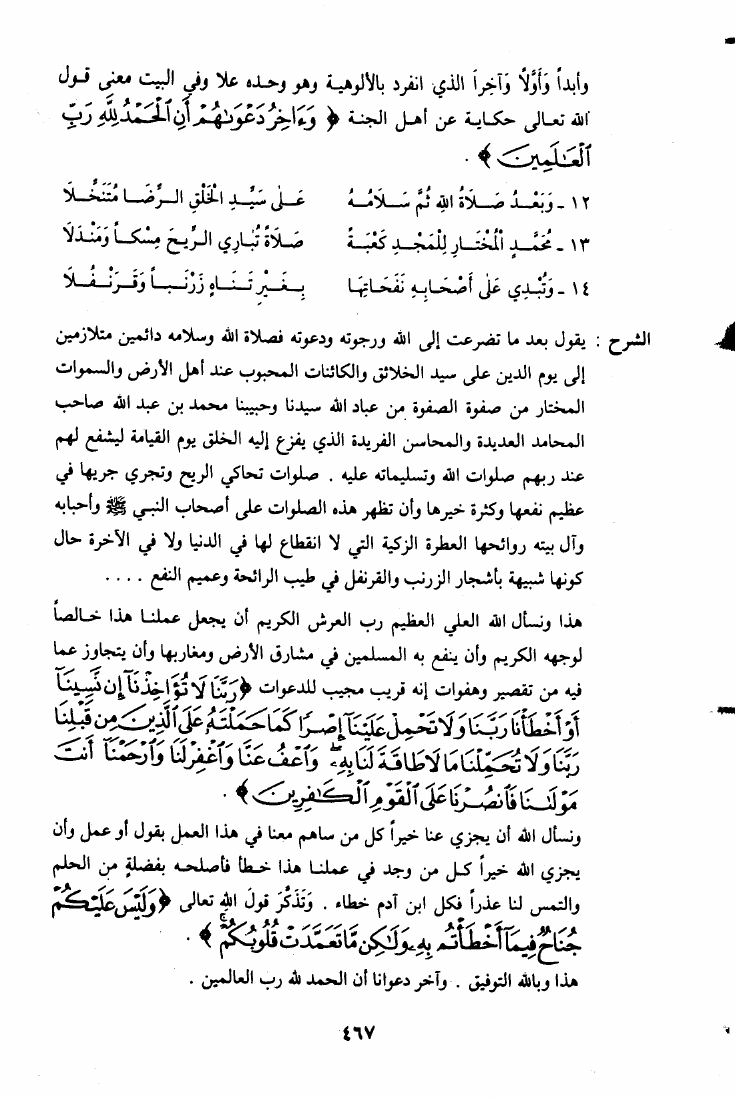 وأبداً وَأَوَّلاً وَآخِراً الذي انفرد بالألوهية وهو وحده علا وفي البيت معنى قول
الله تعالى حكاية عن أهل الجنة ﴿ وَءَاخِرُ دَعْوَىٰهُمْ أَنِ ٱلْحَمْدُ لِلَّهِ رَبِّ
ٱلْعَـٰلَمِينَ ﴾ .
١٢ - وَبَعْدُ صَلَاةُ اللهِ ثُمَّ سَلَامُهُ عَلَى سَيِّدِ الْخَلْقِ الرِّضَا مُتَنَخَّلَا
١٣ - مُحَمَّدٍ الْمُخْتَارِ لِلْمَجْدِ كَعْبَةً صَلَاةً تُبَارِي الرِّيحَ مِسْكاً وَمَنْدَلَا
١٤ - وَتُبْدِي عَلَى أَصْحَابِهِ نَفَحَاتِهَا بِغَيْرِ تَنَاهٍ زَرْنَباً وَقَرَنْفُلَا
الشرح : يقول بعد ما تضرعت إلى الله ورجوته ودعوته فصلاة الله وسلامه دائمين متلازمين
إلى يوم الدين على سيد الخلائق والكائنات المحبوب عند أهل الأرض والسموات
المختار من صفوة الصفوة من عباد الله سيدنا وحبيبنا محمد بن عبد الله صاحب
المحامد العديدة والمحاسن الفريدة الذي يفزع إليه الخلق يوم القيامة ليشفع لهم
عند ربهم صلوات الله وتسليماته عليه . صلوات تحاكي الريح وتجري جريها في
عظيم نفعها وكثرة خيرها وأن تظهر هذه الصلوات على أصحاب النبي ﷺ وأحبابه
وآل بيته روائحها العطرة الزكية التي لا انقطاع لها في الدنيا ولا في الآخرة حال
كونها شبيهة بأشجار الزرنب والقرنفل في طيب الرائحة وعميم النفع . . . .
هذا ونسأل الله العلي العظيم رب العرش الكريم أن يجعل عملنا هذا خالصاً
لوجهه الكريم وأن ينفع به المسلمين في مشارق الأرض ومغاربها وأن يتجاوز عما
فيه من تقصير وهفوات إنه قريب مجيب للدعوات ﴿ رَبَّنَا لَا تُؤَاخِذْنَآ إِن نَّسِينَآ
أَوْ أَخْطَأْنَا رَبَّنَا وَلَا تَحْمِلْ عَلَيْنَآ إِصْرًا كَمَا حَمَلْتَهُۥ عَلَى ٱلَّذِينَ مِن قَبْلِنَا
رَبَّنَا وَلَا تُحَمِّلْنَا مَا لَا طَاقَةَ لَنَا بِهِۦ وَٱعْفُ عَنَّا وَٱغْفِرْ لَنَا وَٱرْحَمْنَآ أَنتَ
مَوْلَىٰنَا فَٱنصُرْنَا عَلَى ٱلْقَوْمِ ٱلْكَـٰفِرِينَ ﴾ .
ونسأل الله أن يجزي عنا خيراً كل من ساهم معنا في هذا العمل بقول أو عمل وأن
يجزي الله خيراً كل من وجد في عملنا هذا خطأ فأصلحه بفضلةٍ من الحلم
والتمس لنا عذراً فكل ابن آدم خطاء . وَتَذَكَّرَ قولَ اللهِ تعالى ﴿ وَلَيْسَ عَلَيْكُمْ
جُنَاحٌ فِيمَآ أَخْطَأْتُم بِهِۦ وَلَـٰكِن مَّا تَعَمَّدَتْ قُلُوبُكُمْ ﴾ .
هذا وبالله التوفيق . وآخر دعوانا أن الحمد لله رب العالمين .
٤٦٧